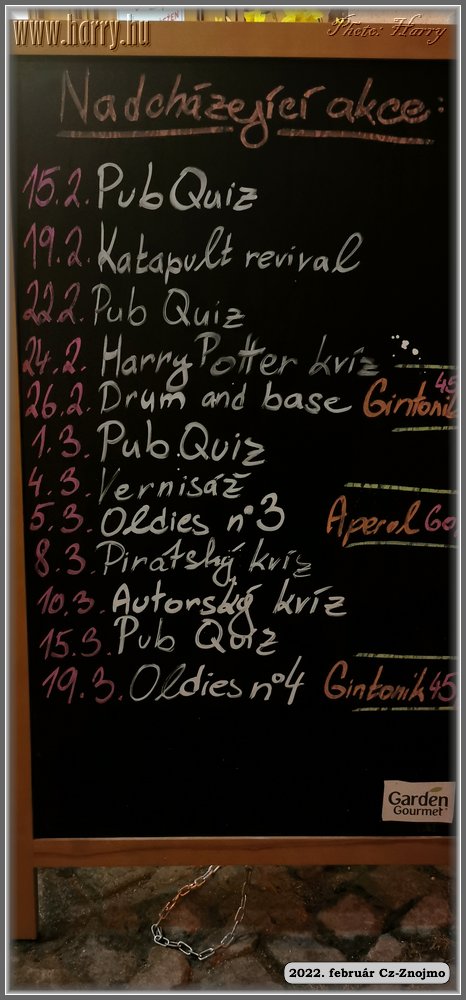 www.harry.hu
Photo: Harry
Nadcházející akce:
15.2. Pub Quiz
19.2. Katapult revival
22.2. Pub Quiz
24.2. Harry Potter kvíz
26.2. Drum and base Gintonik 45
1.3. Pub Quiz
4.3. Vernisáž
5.3. Oldies n°3 Aperol 60,
8.3. Pirátský kvíz
10.3. Autorský kvíz
15.3. Pub Quiz
19.3. Oldies n°4 Gintonik 45
Garden
Gourmet
2022. február Cz-Znojmo